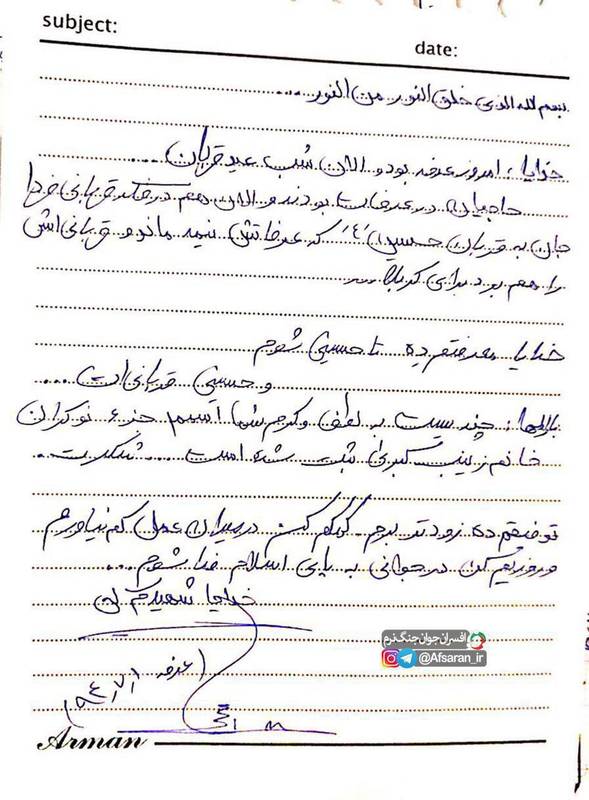 subject:
date:
بسم الله الذی خلق النور من النور ...
خدایا، امروز عرفه بود و الان شب عید قربان ....
حاجیان در عرفات بودند و الان هم در فکر قربانی فردا
جان به قربان حسین (ع) که عرفاتش نیمه ماند و قربانی اش
را هم برد برای کربلا ....
خدایا معرفتم ده تا حسینی شوم
و حسینی قربانی ات ....
بارالها: چندیست به لطف و کرم شما اسمم جزء نوکران
خانم زینب کبری ثبت شده است .... شکرت ...
توفیقم ده زودتر بروم. کمکم کن در میدان عمل کم نیاورم
و روزیم کن در جوانی به پای اسلام فدا شوم ...
خدایا شهیدم کن
افسران جوان جنگ نرم
@Afsaran_ir
عرفه ۹۴٫۷٫۱
Arman